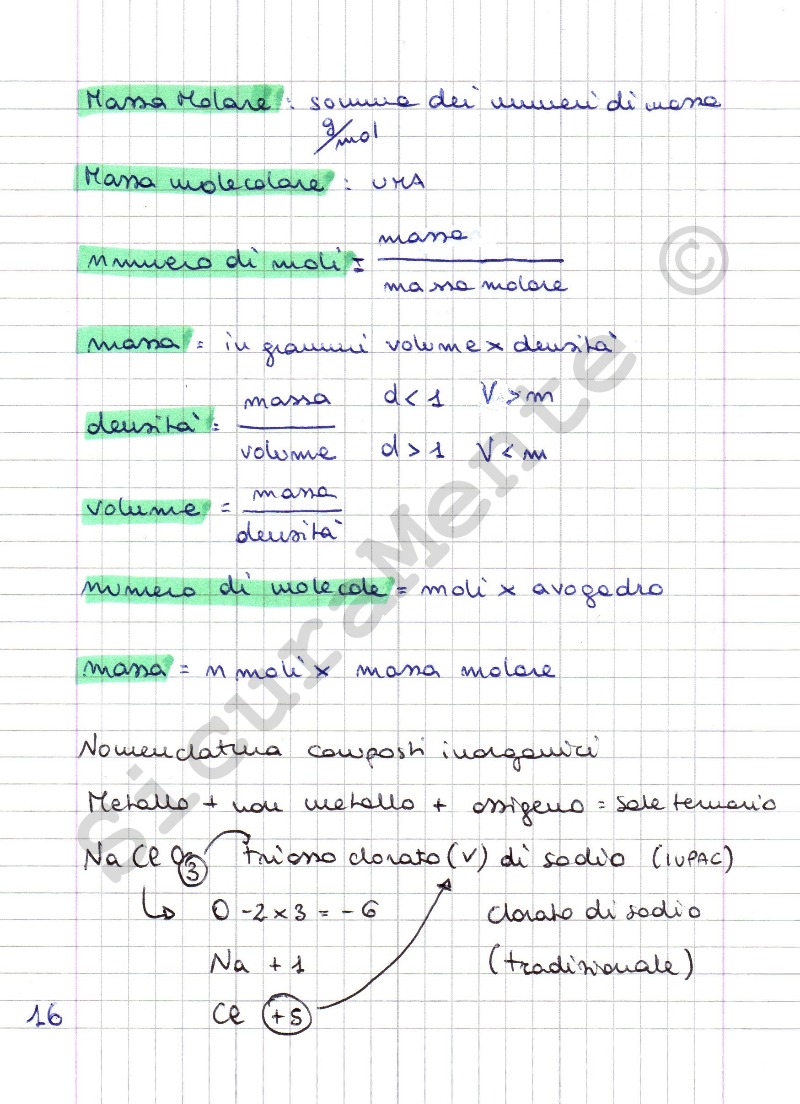 Massa Molare: somma dei numeri di massa
g/mol
Massa molecolare: UMA
numero di moli = massa / massa molare
massa = in grammi volume x densità
densità = massa / volume d < 1 V > m
d > 1 V < m
volume = massa / densità
numero di molecole = moli x avogadro
massa = n moli x massa molare
Nomenclatura composti inorganici
Metallo + non metallo + ossigeno = sale ternario
NaClO3 triosso clorato (V) di sodio (IUPAC)
O -2 x 3 = -6 clorato di sodio
Na +1 (tradizionale)
Cl +5
16
SicuraMente ©